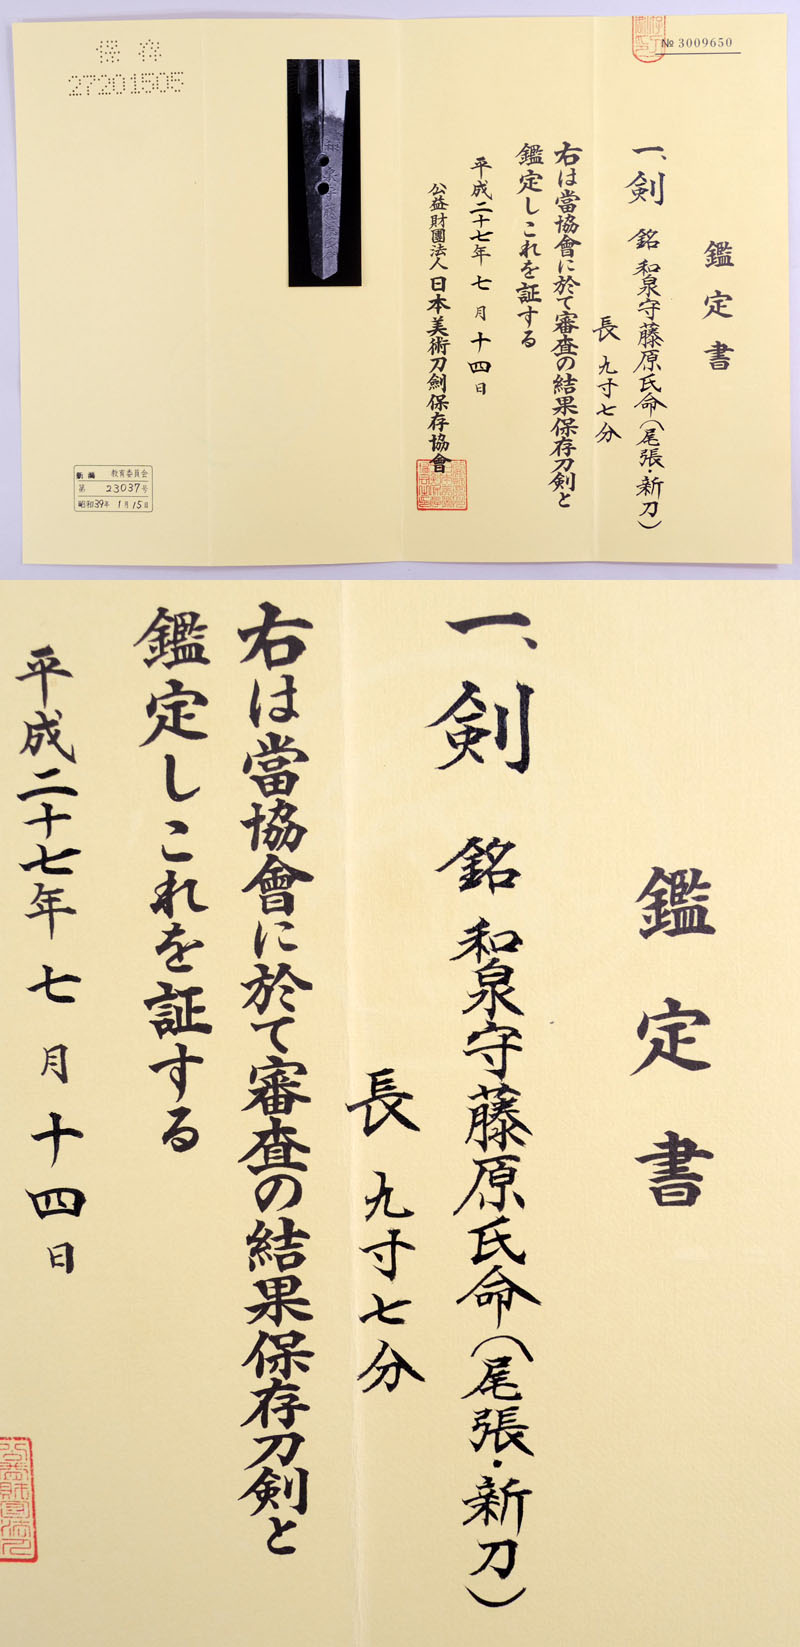 № 3009650
鑑定書
一、剣 銘 和泉守藤原氏命(尾張・新刀)
長 九寸七分
右は當協會に於て審査の結果保存刀剣と
鑑定しこれを証する
平成二十七年 七月十四日
公益財團法人 日本美術刀劍保存協會
保存
27201505
新潟 教育委員会
第 23037号
昭和39年 1月15日
鑑定書
一、剣 銘 和泉守藤原氏命(尾張・新刀)
長 九寸七分
右は當協會に於て審査の結果保存刀剣と
鑑定しこれを証する
平成二十七年 七月十四日